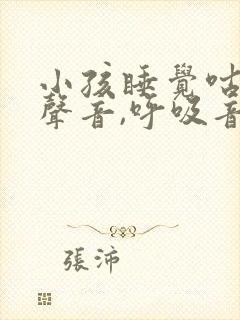 小孩睡覺咕
聲音,呼吸音
張沛